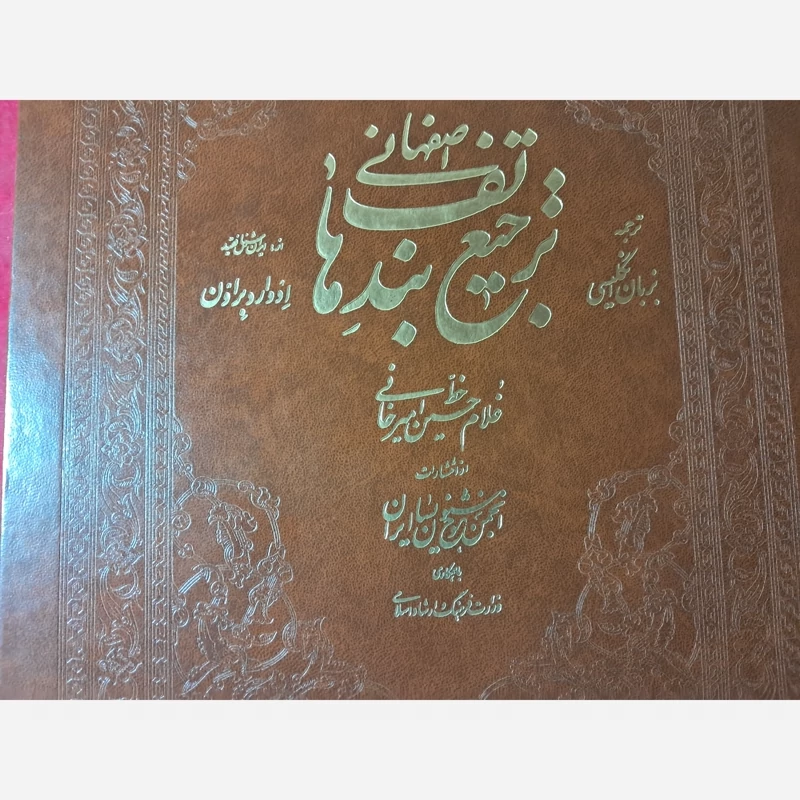 ترجیع بند هاتف اصفهانی
ترجمه
بزبان انگلیسی
از: ایران شناس فقید
ادوارد براون
خط
غلامحسین امیرخانی
از انتشارات
انجمن خوشنویسان ایران
با همکاری
وزارت فرهنگ و ارشاد اسلامی